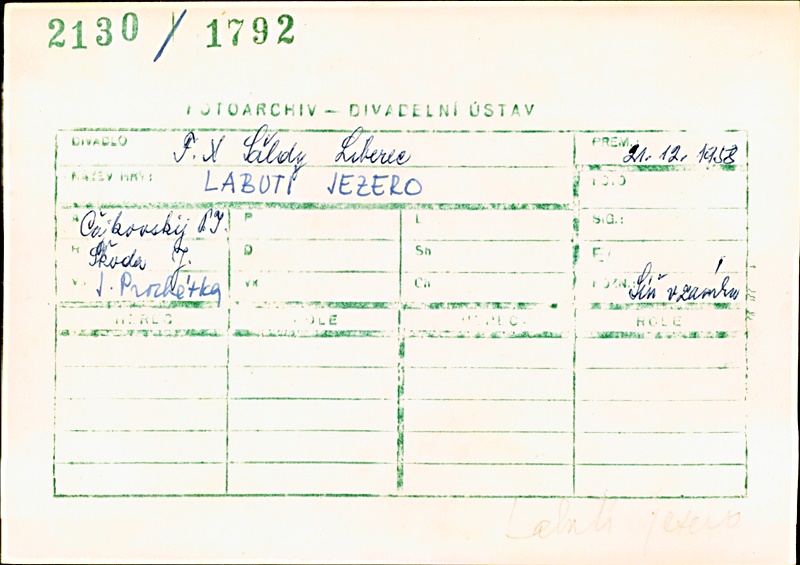 2130 / 1792
FOTOARCHIV – DIVADELNÍ ÚSTAV
DIVADLO F. X Šaldy Liberec PREM.: 21. 12. 1958
NÁZEV HRY: LABUTÍ JEZERO FOTO
A Čajkovskij P.I. P L SIG.:
R Škoda J. D Sh F/
V J. Procházka VK Ch POZN. Síň v zámku
HEREC ROLE HEREC ROLE
Labutí jezero